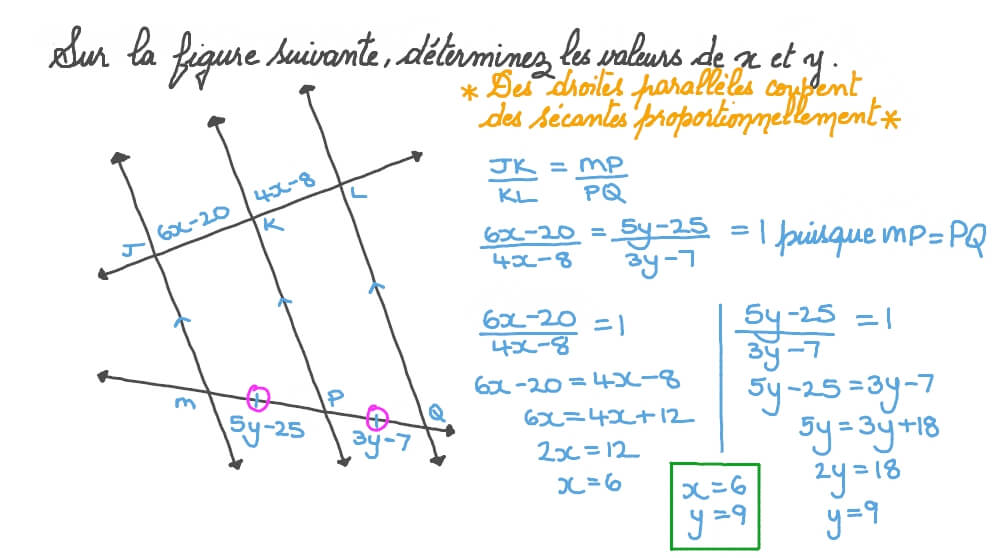 Sur la figure suivante, déterminez les valeurs de x et y.
* Des droites parallèles coupent
des sécantes proportionnellement *
JK/KL = MP/PQ
(6x-20)/(4x-8) = (5y-25)/(3y-7) = 1 puisque MP=PQ
(6x-20)/(4x-8) = 1
6x-20=4x-8
6x=4x+12
2x=12
x=6
(5y-25)/(3y-7) = 1
5y-25=3y-7
5y=3y+18
2y=18
y=9
x=6
y=9
J
6x-20
K
4x-8
L
M
5y-25
P
3y-7
Q